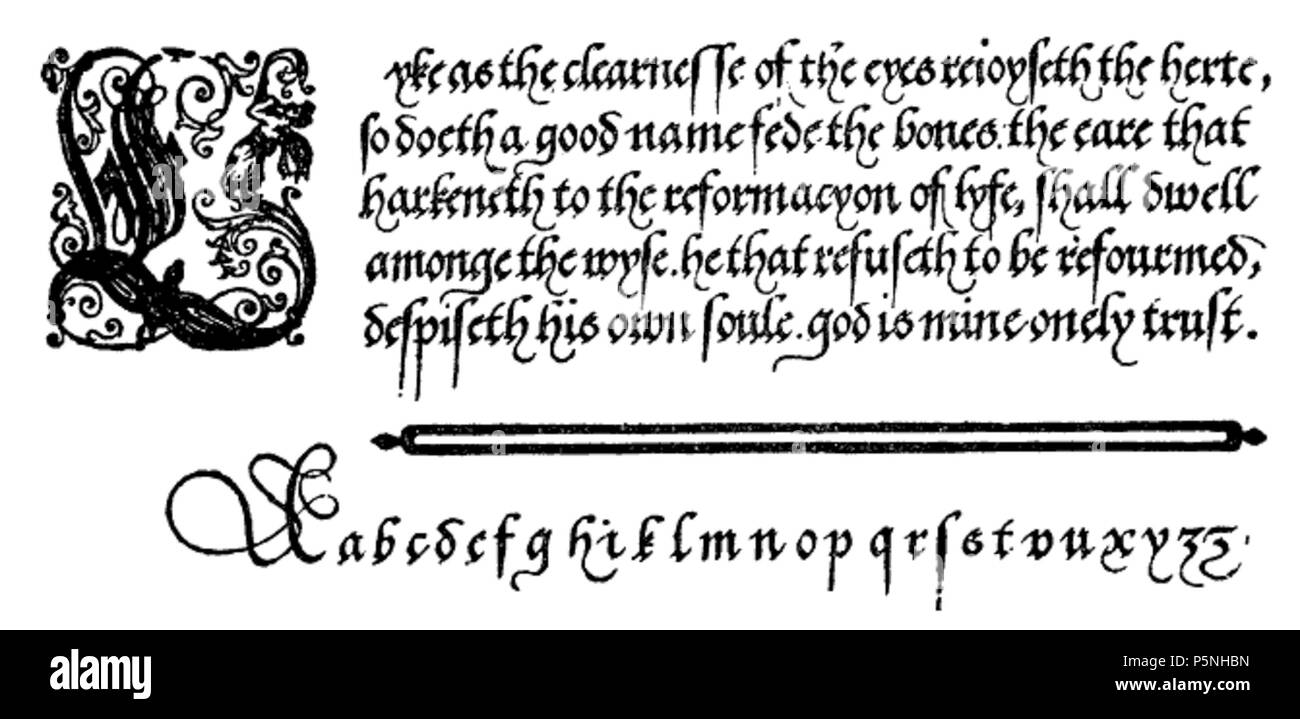 Lyke as the clearnesse of the eyes reioyseth the herte,
so doeth a good name fede the bones. the eare that
harkeneth to the reformacyon of lyfe, shall dwell
amonge the wyse. he that refuseth to be refourmed,
despiseth his own soule. god is mine onely trust.
A a b c d e f g h i k l m n o p q r ſ s t v u x y z z.
alamy
Image ID: P5NHBN
www.alamy.com